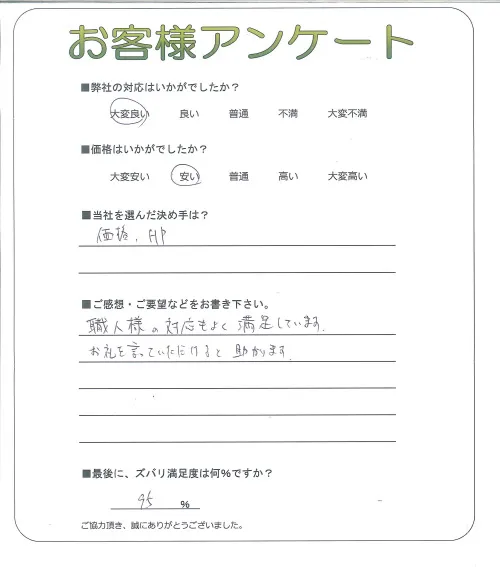 お客様アンケート
■弊社の対応はいかがでしたか?
大変良い 良い 普通 不満 大変不満
■価格はいかがでしたか?
大変安い 安い 普通 高い 大変高い
■当社を選んだ決め手は?
価格、HP
■ご感想・ご要望などをお書き下さい。
職人様の対応もよく満足しています。
お礼を言っていただけると助かります。
■最後に、ズバリ満足度は何%ですか?
95 %
ご協力頂き、誠にありがとうございました。